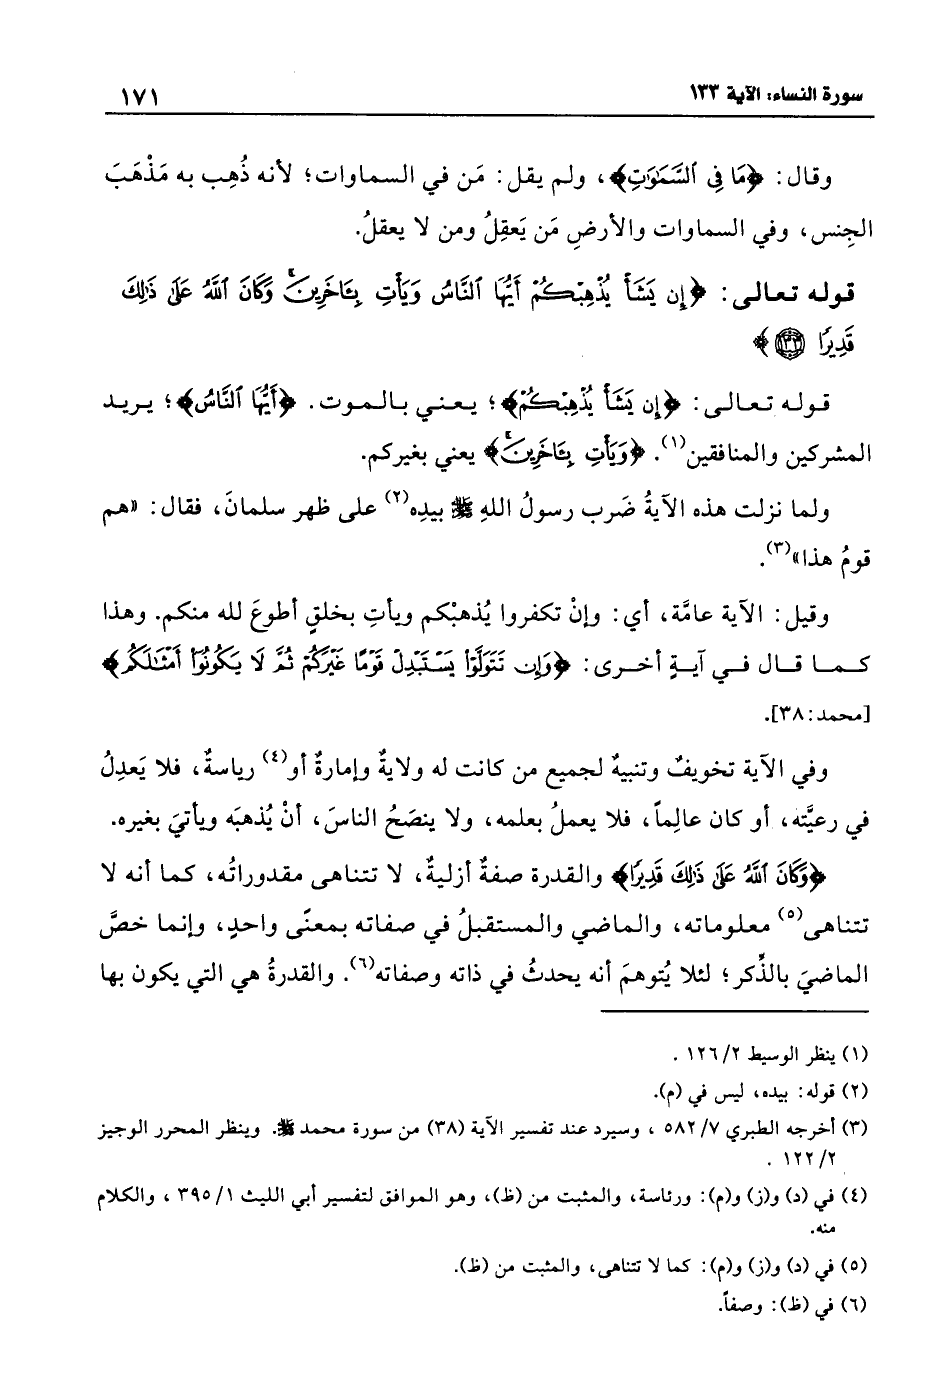 سورة النساء: الآية ١٣٣
١٧١
وقال: ﴿مَا فِي ٱلسَّمَٰوَٰتِ﴾، ولم يقل: مَن في السماوات؛ لأنه ذُهِب به مَذْهَبَ
الجِنس، وفي السماوات والأرضِ مَن يَعقِلُ ومن لا يعقلُ.
قوله تعالى: ﴿إِن يَشَأْ يُذْهِبْكُمْ أَيُّهَا ٱلنَّاسُ وَيَأْتِ بِـَٔاخَرِينَۚ وَكَانَ ٱللَّهُ عَلَىٰ ذَٰلِكَ
قَدِيرًا ١٣٣﴾
قوله تعالى: ﴿إِن يَشَأْ يُذْهِبْكُمْ﴾؛ يعني بالموت. ﴿أَيُّهَا ٱلنَّاسُ﴾؛ يريد
المشركين والمنافقين(١). ﴿وَيَأْتِ بِـَٔاخَرِينَۚ﴾ يعني بغيركم.
ولما نزلت هذه الآيةُ ضَرب رسولُ اللهِ ﷺ بيدِه(٢) على ظهر سلمانَ، فقال: «هم
قومُ هذا»(٣).
وقيل: الآية عامَّة، أي: وإنْ تكفروا يُذهبْكم ويأتِ بخلقٍ أطوعَ لله منكم. وهذا
كما قال في آيةٍ أخرى: ﴿وَإِن تَتَوَلَّوْا۟ يَسْتَبْدِلْ قَوْمًا غَيْرَكُمْ ثُمَّ لَا يَكُونُوٓا۟ أَمْثَٰلَكُم﴾
[محمد: ٣٨].
وفي الآية تخويفٌ وتنبيهٌ لجميع من كانت له ولايةٌ وإمارةٌ أو(٤) رياسةٌ، فلا يَعدِلُ
في رعيَّته، أو كان عالِماً، فلا يعملُ بعلمه، ولا ينصَحُ الناسَ، أنْ يُذهبَه ويأتيَ بغيره.
﴿وَكَانَ ٱللَّهُ عَلَىٰ ذَٰلِكَ قَدِيرًا﴾ والقدرة صفةٌ أزليةٌ، لا تتناهى مقدوراتُه، كما أنه لا
تتناهى(٥) معلوماته، والماضي والمستقبلُ في صفاته بمعنًى واحدٍ، وإنما خصَّ
الماضيَ بالذِّكر؛ لئلا يُتوهمَ أنه يحدثُ في ذاته وصفاته(٦). والقدرةُ هي التي يكون بها
(١) ينظر الوسيط ٢/ ١٢٦ .
(٢) قوله: بيده، ليس في (م).
(٣) أخرجه الطبري ٧/ ٥٨٢ ، وسيرد عند تفسير الآية (٣٨) من سورة محمد ﷺ. وينظر المحرر الوجيز
٢/ ١٢٢ .
(٤) في (د) و(ز) و(م): ورئاسة، والمثبت من (ظ)، وهو الموافق لتفسير أبي الليث ١/ ٣٩٥ ، والكلام
منه.
(٥) في (د) و(ز) و(م): كما لا تتناهى، والمثبت من (ظ).
(٦) في (ظ): وصفاً.